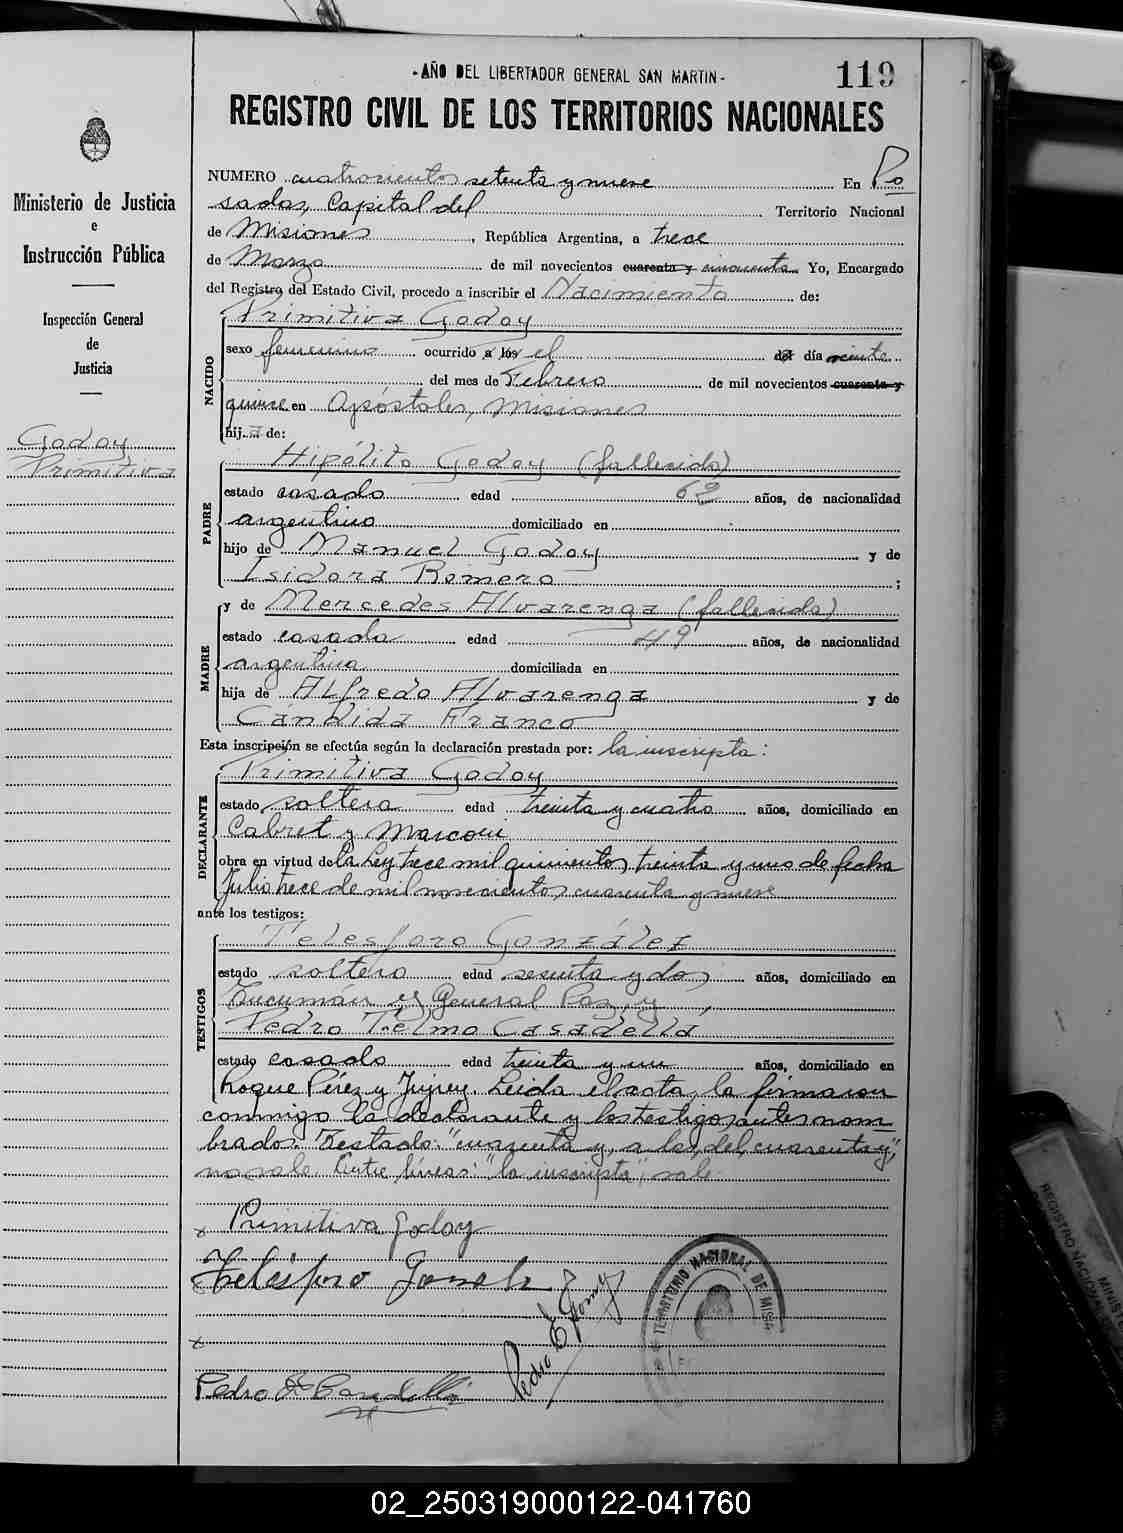 -AÑO DEL LIBERTADOR GENERAL SAN MARTIN-
119
REGISTRO CIVIL DE LOS TERRITORIOS NACIONALES
Ministerio de Justicia
e
Instrucción Pública
Inspección General
de
Justicia
Godoy
Primitiva
NUMERO cuatrocientos setenta y nueve En Po
sadas, Capital del Territorio Nacional
de Misiones, República Argentina, a trece
de Marzo de mil novecientos cuarenta y cincuenta Yo, Encargado
del Registro del Estado Civil, procedo a inscribir el Nacimiento de:
NACIDO
Primitiva Godoy
sexo femenino ocurrido a los el del día veinte
del mes de Febrero de mil novecientos cuarenta y
quince en Apóstoles, Misiones
hija de:
PADRE
Hipólito Godoy (fallecido)
estado casado edad 62 años, de nacionalidad
argentino domiciliado en
hijo de Manuel Godoy y de
Isidora Romero;
MADRE
y de Mercedes Alvarenga (fallecida)
estado casada edad 49 años, de nacionalidad
argentina domiciliada en
hija de Alfredo Alvarenga y de
Cándida Franco
Esta inscripción se efectúa según la declaración prestada por: la inscripta:
DECLARANTE
Primitiva Godoy
estado soltera edad treinta y cuatro años, domiciliado en
Cabret y Marconi
obra en virtud de la Ley trece mil quinientos treinta y uno de fecha
Julio trece de mil novecientos cuarenta y nueve
ante los testigos:
TESTIGOS
Telesforo González
estado soltero edad sesenta y dos años, domiciliado en
Tucumán y General Paz, y
Pedro Telmo Casadella
estado casado edad treinta y un años, domiciliado en
Roque Pérez y Jujuy. Leida el acta, la firmaron
conmigo la declarante y los testigos antes nom-
brados. Testado: "cuarenta y, a los, del, cuarenta y",
no vale. Entre líneas: "la inscripta", vale.
x Primitiva Godoy
Telesforo Gonzalez
x
Pedro T. Casadella
Pedro E.
TERRITORIO NACIONAL DE MISIO
REGISTRO NACIONAL
MINISTE
02_250319000122-041760